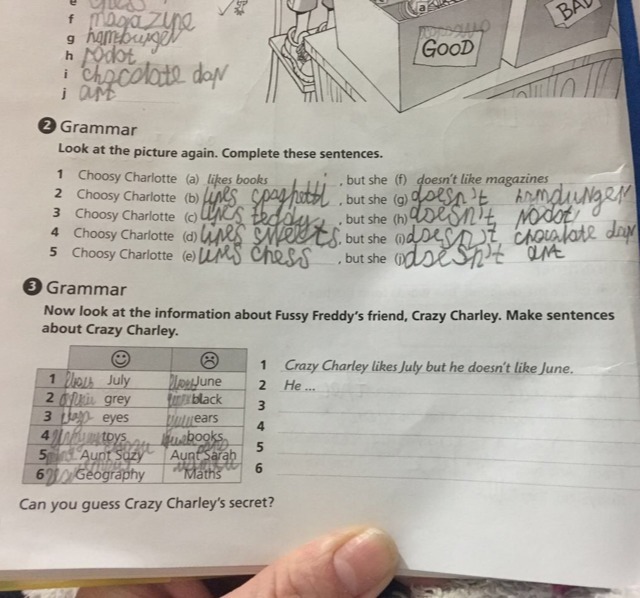 e chess
f magazine
g hamburger
h rodot
i chocolate day
j art
GOOD
BAD
2 Grammar
Look at the picture again. Complete these sentences.
1 Choosy Charlotte (a) likes books, but she (f) doesn't like magazines
2 Choosy Charlotte (b) likes spaghetti, but she (g) doesn't hamdunger
3 Choosy Charlotte (c) likes teddy, but she (h) doesn't rodot
4 Choosy Charlotte (d) likes sweets, but she (i) doesn't chocolate day
5 Choosy Charlotte (e) likes chess, but she (j) doesn't art
3 Grammar
Now look at the information about Fussy Freddy's friend, Crazy Charley. Make sentences
about Crazy Charley.
1 July June
2 grey black
3 eyes ears
4 toys books
5 Aunt Suzy Aunt Sarah
6 Geography Maths
1 Crazy Charley likes July but he doesn't like June.
2 He ...
3
4
5
6
Can you guess Crazy Charley's secret?